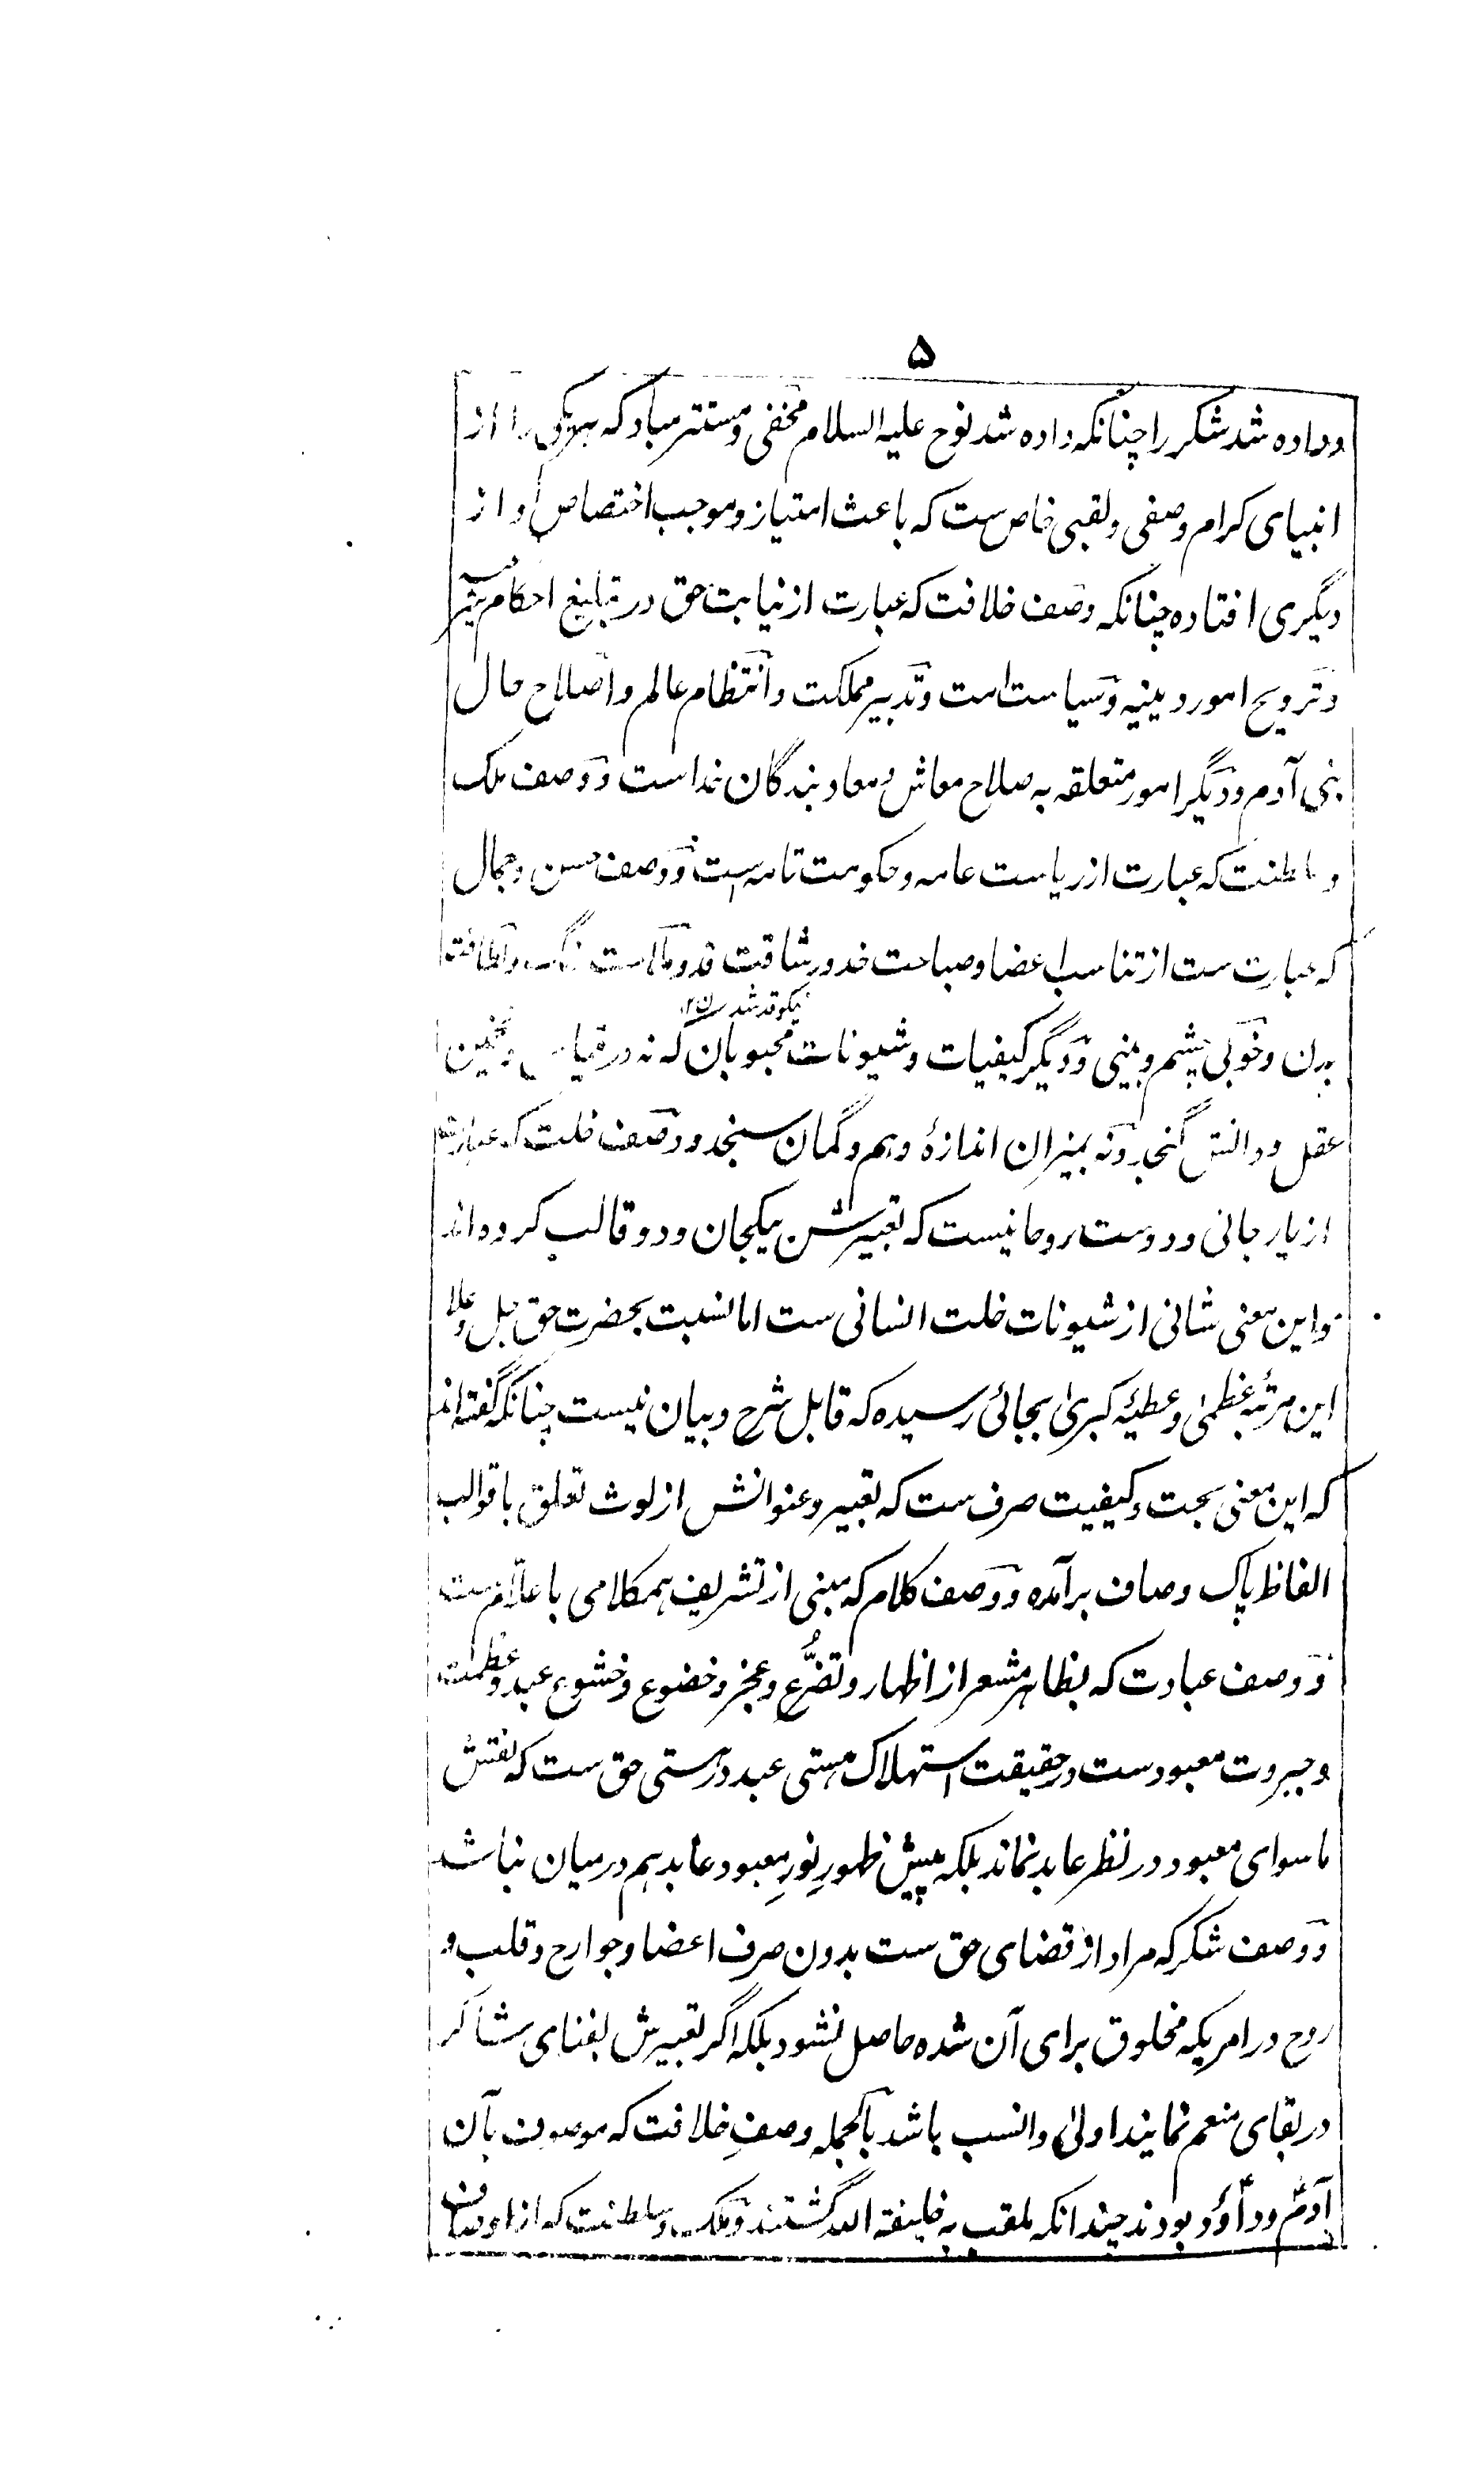 ۵
وداده شد شکر را چنانکه داده شد نوح علیه السلام مخفی ومستتر مباد که هر یکی را از
انبیای کرام وصفی ولقبی خاص ست که باعث امتیاز وموجب اختصاص او از
دیگری افتاده چنانکه وصف خلافت که عبارت از نیابت حق در تبلیغ احکام
وترویج امور دینیه وسیاست است وتدبیر مملکت وانتظام عالم واصلاح حال
بنی آدم ودیگر امور متعلقه به صلاح معاش ومعاد بندگان خداست ووصف ملک
وسلطنت که عبارت از ریاست عامه وحکومت تامه است ووصف حسن وجمال
که عبارت ست از تناسب اعضا وصباحت خد ورشاقت قد وملاست رنگ ولطافت
نیکو قد شدن ۱۲
بدن وخوبی چشم وبینی ودیگر کیفیات وشیونات محبوبان که نه در قیاس وتخمین
عقل ودانش گنجد ونه بمیزان اندازهٔ وهم وگمان سنجد ووصف خلت که عبارت
از یار جانی ودوست روحانیست که تعبیرش بیکجان ودو قالب کرده اند
واین معنی شانی از شیونات خلت انسانی ست اما نسبت بحضرت حق جل وعلا
این مرتبهٔ عظمیٰ وعطیهٔ کبریٰ بجائی رسیده که قابل شرح وبیان نیست چنانکه گفته اند
که این معنی بحت وکیفیت صرف ست که تعبیر وعنوانش از لوث تعلق با قوالب
الفاظ پاک وصاف برآمده ووصف کلام که مبنی از تشریف همکلامی با علام ست
ووصف عبادت که بظاهر مشعر از اظهار وتضرُّع وعجز وخضوع وخشوع عبد وعظمت
وجبروت معبودست درحقیقت استهلاک هستی عبد در هستی حق ست که نقش
ماسوای معبود در نظر عابد نماند بلکه پیش ظهورِ نورِ معبود عابد هم درمیان نباشد
ووصف شکر که مراد از قضای حق ست بدون صرف اعضا وجوارح وقلب و
روح در امریکه مخلوق برای آن شده حاصل نشود بلکه اگر تعبیرش بفنای شاکر
در بقای منعم نمایند اولیٰ وانسب باشد بالجمله وصفِ خلافت که موصوف بآن
آدم وداؤد بودند چندانکه ملقب به خلیفة الله گشتند وملک وسلطنت که از اوصاف